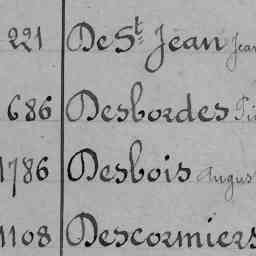 221 De St Jean Jean
686 Desbordes
1786 Desbois Augus
1108 Descormiers